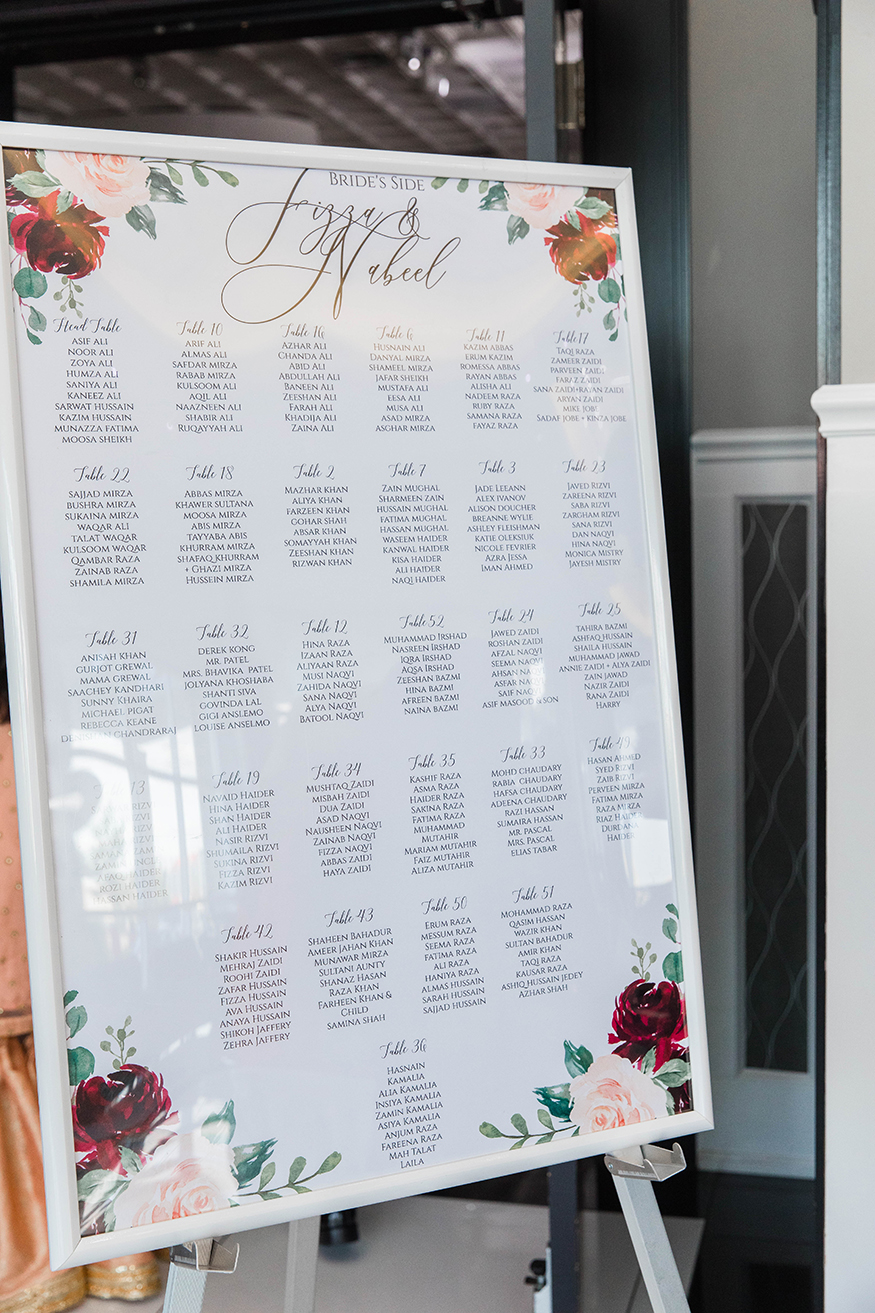 BRIDE'S SIDE
Fizza &
Nabeel
Head Table
ASIF ALI
NOOR ALI
ZOYA ALI
HUMZA ALI
SANIYA ALI
KANEEZ ALI
SARWAT HUSSAIN
KAZIM HUSSAIN
MUNAZZA FATIMA
MOOSA SHEIKH
Table 10
ARIF ALI
ALMAS ALI
SAFDAR MIRZA
RABAB MIRZA
KULSOOM ALI
AQIL ALI
NAAZNEEN ALI
SHABIR ALI
RUQAYYAH ALI
Table 16
AZHAR ALI
CHANDA ALI
ABID ALI
ABDULLAH ALI
BANEEN ALI
ZEESHAN ALI
FARAH ALI
KHADIJA ALI
ZAINA ALI
Table 6
HUSNAIN ALI
DANYAL MIRZA
SHAMEEL MIRZA
JAFAR SHEIKH
MUSTAFA ALI
EESA ALI
MUSA ALI
ASAD MIRZA
ASGHAR MIRZA
Table 11
KAZIM ABBAS
ERUM KAZIM
ROMESSA ABBAS
RAYAN ABBAS
ALISHA ALI
NADEEM RAZA
RUBY RAZA
SAMANA RAZA
FAYAZ RAZA
Table 17
TAQI RAZA
ZAMEER ZAIDI
PARVEEN ZAIDI
FARAZ ZAIDI
SANA ZAIDI+RAYAN ZAIDI
ARYAN ZAIDI
MIKE JOBE
SADAF JOBE + KINZA JOBE
Table 22
SAJJAD MIRZA
BUSHRA MIRZA
SUKAINA MIRZA
WAQAR ALI
TALAT WAQAR
KULSOOM WAQAR
QAMBAR RAZA
ZAINAB RAZA
SHAMILA MIRZA
Table 18
ABBAS MIRZA
KHAWER SULTANA
MOOSA MIRZA
ABIS MIRZA
TAYYABA ABIS
KHURRAM MIRZA
SHAFAQ KHURRAM
+ GHAZI MIRZA
HUSSEIN MIRZA
Table 2
MAZHAR KHAN
ALIYA KHAN
FARZEEN KHAN
GOHAR SHAH
ABSAR KHAN
SOMAYYAH KHAN
ZEESHAN KHAN
RIZWAN KHAN
Table 7
ZAIN MUGHAL
SHARMEEN ZAIN
HUSSAIN MUGHAL
FATIMA MUGHAL
HASSAN MUGHAL
WASEEM HAIDER
KANWAL HAIDER
KISA HAIDER
ALI HAIDER
NAQI HAIDER
Table 3
JADE LEEANN
ALEX IVANOV
ALISON DOUCHER
BREANNE WYLIE
ASHLEY FLEISHMAN
KATIE OLEKSIUK
NICOLE FEVRIER
AZRA JESSA
IMAN AHMED
Table 23
JAVED RIZVI
ZAREENA RIZVI
SABA RIZVI
ZARGHAM RIZVI
SANA RIZVI
DAN NAQVI
HINA NAQVI
MONICA MISTRY
JAYESH MISTRY
Table 31
ANISAH KHAN
GURJOT GREWAL
MAMA GREWAL
SAACHEY KANDHARI
SUNNY KHAIRA
MICHAEL PIGAT
REBECCA KEANE
CHANDRARAJ
Table 32
DEREK KONG
MR. PATEL
MRS. BHAVIKA PATEL
JOLYANA KHOSHABA
SHANTI SIVA
GOVINDA LAL
GIGI ANSLEMO
LOUISE ANSELMO
Table 12
HINA RAZA
IZAAN RAZA
ALIYAAN RAZA
MUSI NAQVI
ZAHIDA NAQVI
SANA NAQVI
ALYA NAQVI
BATOOL NAQVI
Table 52
MUHAMMAD IRSHAD
NASREEN IRSHAD
IQRA IRSHAD
AQSA IRSHAD
ZEESHAN BAZMI
HINA BAZMI
AFREEN BAZMI
NAINA BAZMI
Table 24
JAWED ZAIDI
ROSHAN ZAIDI
AFZAL NAQVI
SEEMA NAQVI
AHSAN NAQVI
ASFAR NAQVI
SAIF NAQVI
ASIF MASOOD & SON
Table 25
TAHIRA BAZMI
ASHFAQ HUSSAIN
SHAILA HUSSAIN
MUHAMMAD JAWAD
ANNIE ZAIDI + ALYA ZAIDI
ZAIN JAWAD
NAZIR ZAIDI
RANA ZAIDI
HARRY
Table 13
RIZVI
RIZVI
HAIDER
ROZI HAIDER
HASSAN HAIDER
Table 19
NAVAID HAIDER
HINA HAIDER
SHAN HAIDER
ALI HAIDER
NASIR RIZVI
SHUMAILA RIZVI
SUKINA RIZVI
FIZZA RIZVI
KAZIM RIZVI
Table 34
MUSHTAQ ZAIDI
MISBAH ZAIDI
DUA ZAIDI
ASAD NAQVI
NAUSHEEN NAQVI
ZAINAB NAQVI
FIZZA NAQVI
ABBAS ZAIDI
HAYA ZAIDI
Table 35
KASHIF RAZA
ASMA RAZA
HAIDER RAZA
SAKINA RAZA
FATIMA RAZA
MUHAMMAD
MUTAHIR
MARIAM MUTAHIR
FAIZ MUTAHIR
ALIZA MUTAHIR
Table 33
MOHD CHAUDARY
RABIA CHAUDARY
HAFSA CHAUDARY
ADEENA CHAUDARY
RAZI HASSAN
SUMAIRA HASSAN
MR. PASCAL
MRS. PASCAL
ELIAS TABAR
Table 49
HASAN AHMED
SYED RIZVI
ZAIB RIZVI
PERVEEN MIRZA
FATIMA MIRZA
RAZA MIRZA
RIAZ HAIDER
DURDANA
HAIDER
Table 42
SHAKIR HUSSAIN
MEHRAJ ZAIDI
ROOHI ZAIDI
ZAFAR HUSSAIN
FIZZA HUSSAIN
AVA HUSSAIN
ANAYA HUSSAIN
SHIKOH JAFFERY
ZEHRA JAFFERY
Table 43
SHAHEEN BAHADUR
AMEER JAHAN KHAN
MUNAWAR MIRZA
SULTANI AUNTY
SHANAZ HASAN
RAZA KHAN
FARHEEN KHAN &
CHILD
SAMINA SHAH
Table 50
ERUM RAZA
MESSUM RAZA
SEEMA RAZA
FATIMA RAZA
ALI RAZA
HANIYA RAZA
ALMAS HUSSAIN
SARAH HUSSAIN
SAJJAD HUSSAIN
Table 51
MOHAMMAD RAZA
QASIM HASSAN
WAZIR KHAN
SULTAN BAHADUR
AMIR KHAN
TAQI RAZA
KAUSAR RAZA
ASHIQ HUSSAIN JEDEY
AZHAR SHAH
Table 36
HASNAIN
KAMALIA
ALIA KAMALIA
INSIYA KAMALIA
ZAMIN KAMALIA
ASIYA KAMALIA
ANJUM RAZA
FAREENA RAZA
MAH TALAT
LAILA